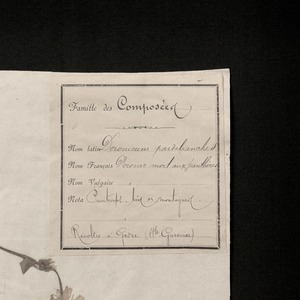 Famille des Composées
Nom latin Doronicum pardalianches
Nom Français Doronic mort aux panthères
Nom Vulgaire
Nota bois et montagnes.
Récolté à Gèdre (Hte Garonne)